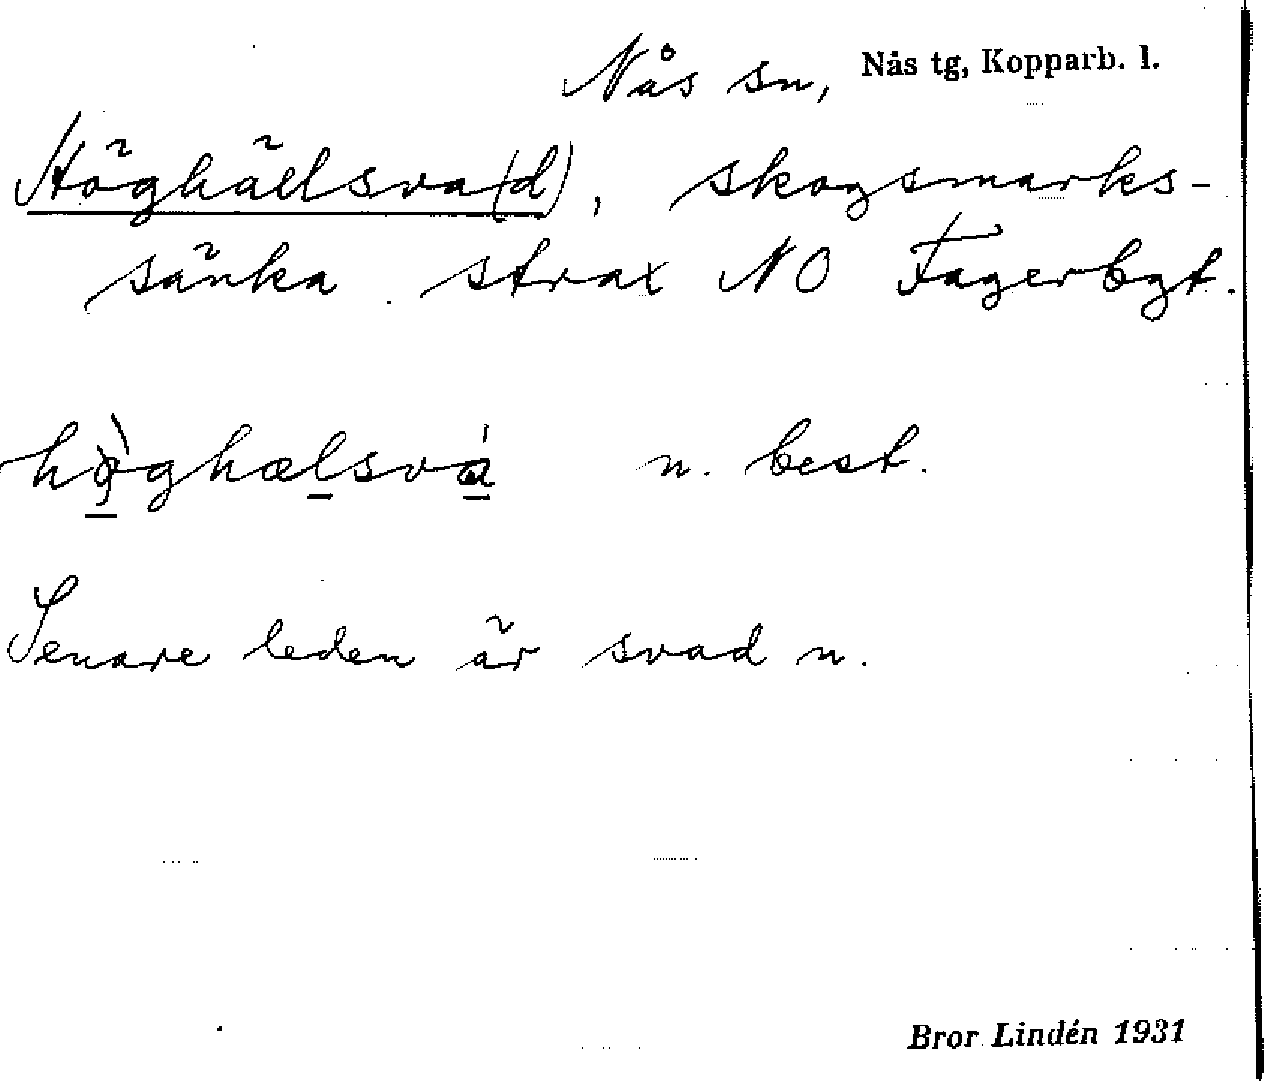 Nås sn, Nås tg, Kopparb. l.
Höghällsva(d), skogsmarks-
sänka strax NO Fagerbgt.
hø̀ghælsvá n. best.
Senare leden är svad n.
Bror Lindén 1931